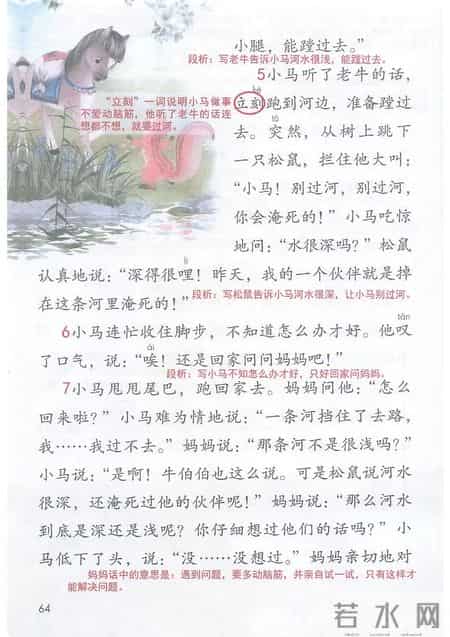 小腿，能蹚过去。”
段析：写老牛告诉小马河水很浅，能蹚过去。
5小马听了老牛的话，
kè
“立刻”一词说明小马做事
不爱动脑筋，他听了老牛的话连
想都不想，就要过河。
立刻跑到河边，准备蹚过
tū
去。突然，从树上跳下
一只松鼠，拦住他大叫：
“小马！别过河，别过河，
你会淹死的！”小马吃惊
地问：“水很深吗？”松鼠
li
认真地说：“深得很哩！昨天，我的一个伙伴就是掉
在这条河里淹死的！”
段析：写松鼠告诉小马河水很深，让小马别过河。
tàn
6小马连忙收住脚步，不知道怎么办才好。他叹
ài
了口气，说：“唉！还是回家问问妈妈吧！”
段析：写小马不知怎么办才好，只好回家问妈妈。
7小马甩甩尾巴，跑回家去。妈妈问他：“怎么
回来啦？”小马难为情地说：“一条河挡住了去路，
我……我过不去。”妈妈说：“那条河不是很浅吗？”
小马说：“是啊！牛伯伯也这么说。可是松鼠说河水
很深，还淹死过他的伙伴呢！”妈妈说：“那么河水
到底是深还是浅呢？你仔细想过他们的话吗？”小
马低下了头，说：“没……没想过。”妈妈亲切地对
妈妈话中的意思是：遇到问题，要多动脑筋，并亲自试一试，只有这样才
能解决问题。
64
若水网